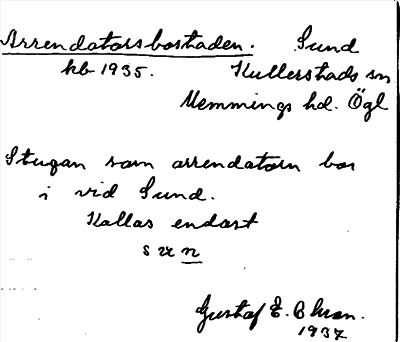 Arrendatorsbostaden. Sund
hb 1935. Kullerstads sn
Memmings hd. Ögl
Stugan som arrendatorn bor
i vid Sund.
Kallas endast
Gustaf E.
1937